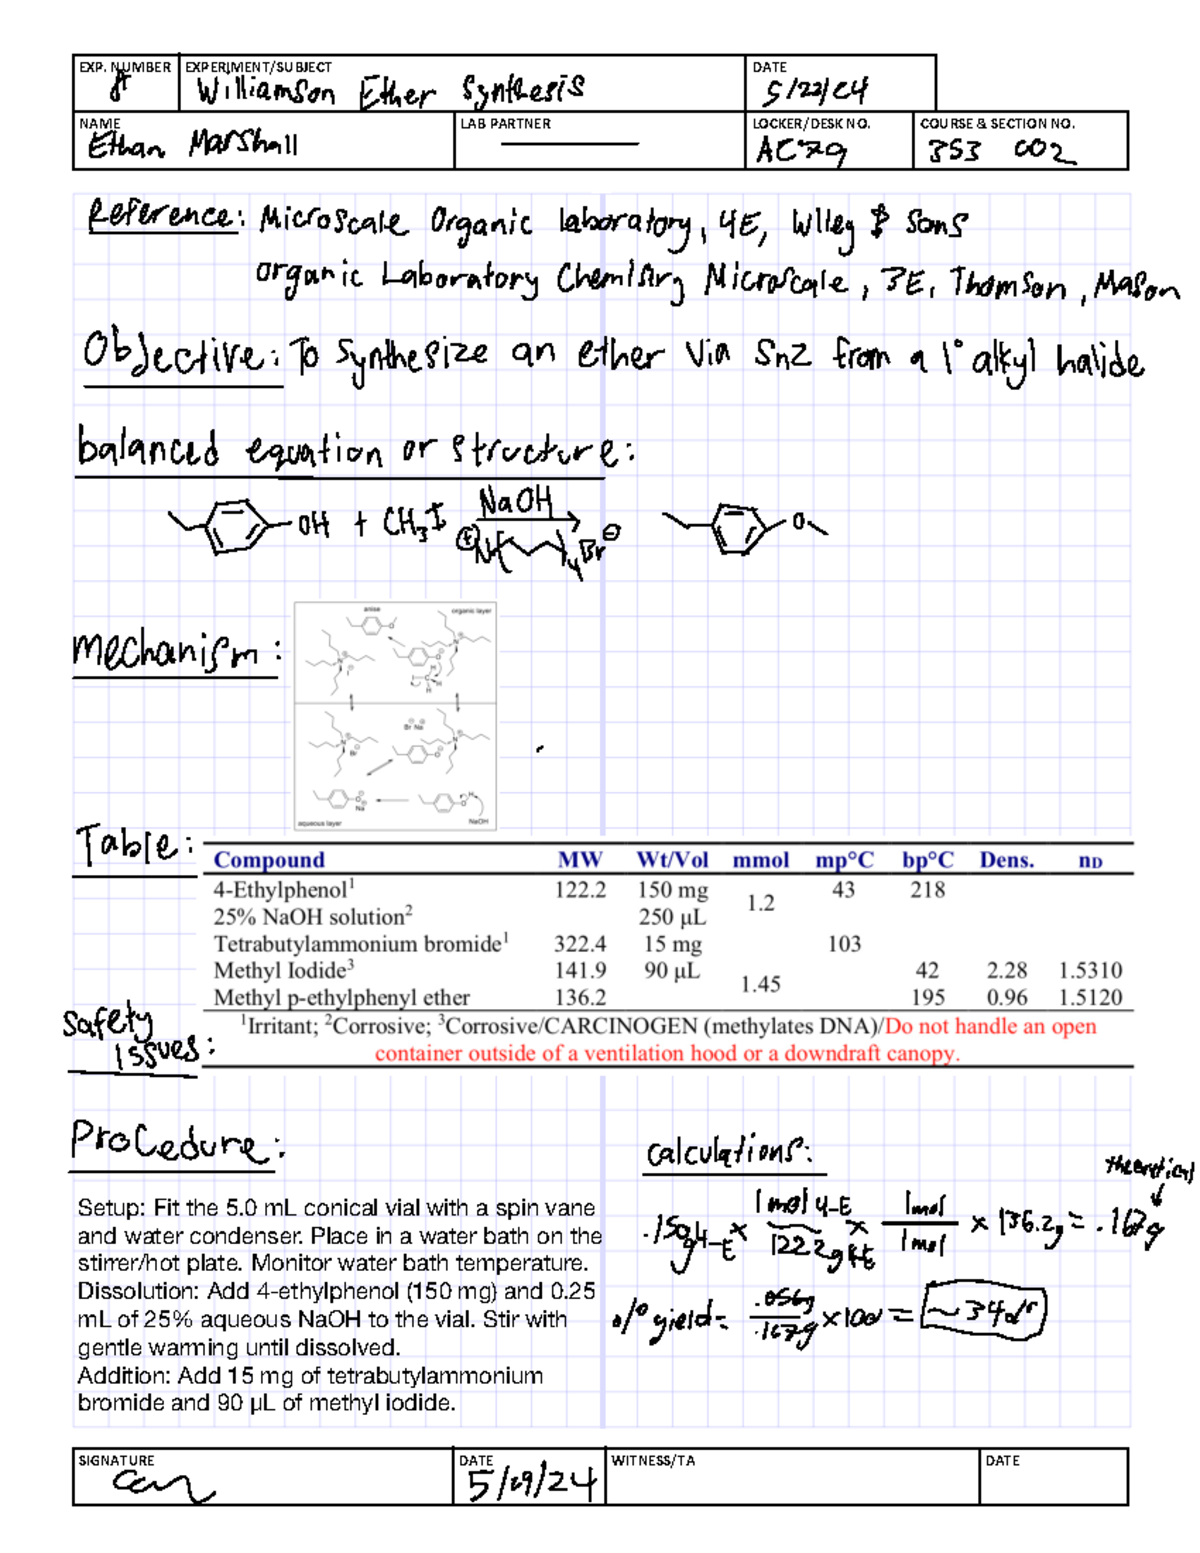 EXP. NUMBER EXPERIMENT/SUBJECT DATE
8 Williamson Ether Synthesis 5/22/24
NAME LAB PARTNER LOCKER/DESK NO. COURSE & SECTION NO.
Ethan Marshall AC79 353 002
Reference: Microscale Organic laboratory, 4E, Wiley & Sons
organic Laboratory Chemistry Microscale, 3E, Thomson, Mason
Objective: To synthesize an ether via Sn2 from a 1° alkyl halide
balanced equation or structure:
OH + CH3I NaOH
N 4 Br O
mechanism:
anise organic layer
Br Na
Br
Na NaOH
aqueous layer
Table:
Compound MW Wt/Vol mmol mp°C bp°C Dens. nD
4-Ethylphenol1 122.2 150 mg 1.2 43 218
25% NaOH solution2 250 µL
Tetrabutylammonium bromide1 322.4 15 mg 103
Methyl Iodide3 141.9 90 µL 1.45 42 2.28 1.5310
Methyl p-ethylphenyl ether 136.2 195 0.96 1.5120
Safety Issues:
1Irritant; 2Corrosive; 3Corrosive/CARCINOGEN (methylates DNA)/Do not handle an open
container outside of a ventilation hood or a downdraft canopy.
Procedure:
Setup: Fit the 5.0 mL conical vial with a spin vane
and water condenser. Place in a water bath on the
stirrer/hot plate. Monitor water bath temperature.
Dissolution: Add 4-ethylphenol (150 mg) and 0.25
mL of 25% aqueous NaOH to the vial. Stir with
gentle warming until dissolved.
Addition: Add 15 mg of tetrabutylammonium
bromide and 90 µL of methyl iodide.
Calculations:
theoretical
.150g 4-E × 1 mol 4-E / 122.2g × 1 mol / 1 mol × 136.2g = .167g
% yield = .056g / .167g × 100 = ~34%
SIGNATURE DATE WITNESS/TA DATE
5/29/24